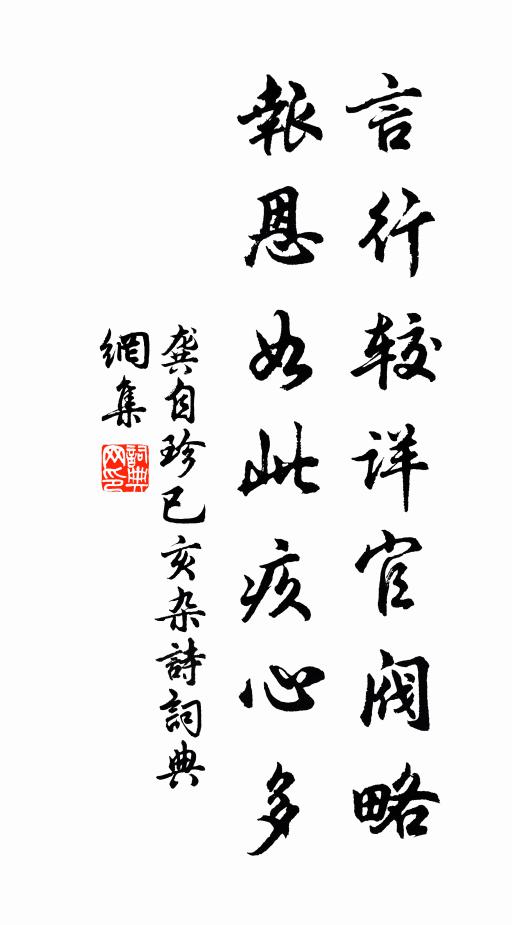 言行较详官阀略
報恩如此疚心多
龚自珍已亥杂詩詞典
網集
詞典網印